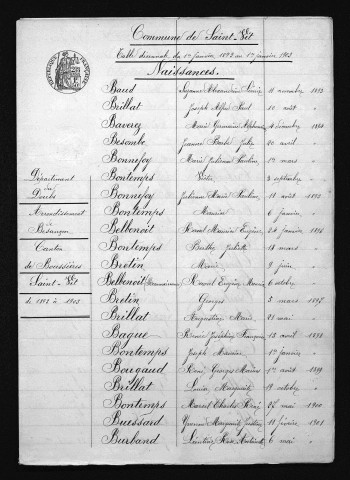 Commune de Saint-Vit
Table décennale du 1er janvier 1893 au 1er janvier 1903
Naissances.
Baud Suzanne Alexandrine Louise 11 novembre 1893
Brillat Joseph Alfred Paul 10 août "
Baverey Marie Germaine 4 décembre
Besombe Jeanne Berthe Julie 20 avril "
Bonnefoy Marie Julienne Pauline 1er mars "
Bontemps Victor 3 septembre "
Bonnefoy Julienne Marie Pauline 18 août 1893
Bontemps Maurice 6 janvier "
Belbenoit Marcel Maurice Eugène 24 janvier
Bontemps Berthe Juliette 14 mars "
Bretin Marie 9 juin "
Belbenoit Marcel Eugène Maurice 6 octobre
Bretin Georges 5 mars 1897
Brillat Augustine Marie 23 mai "
Bague Marie Joséphine Françoise 12 avril 1898
Bontemps Joseph Maurice 1er janvier "
Bougaud René Georges Marius 1er août 1899
Brillat Louise Marguerite 19 octobre "
Bontemps Marcel Charles René 27 mai 1900
Buissard Yvonne Marguerite 18 février 1901
Burband 6 mai "
Département
du
Doubs
Arrondissement
Besançon
Canton
de Boussières
Saint-Vit
de 1893 à 1903